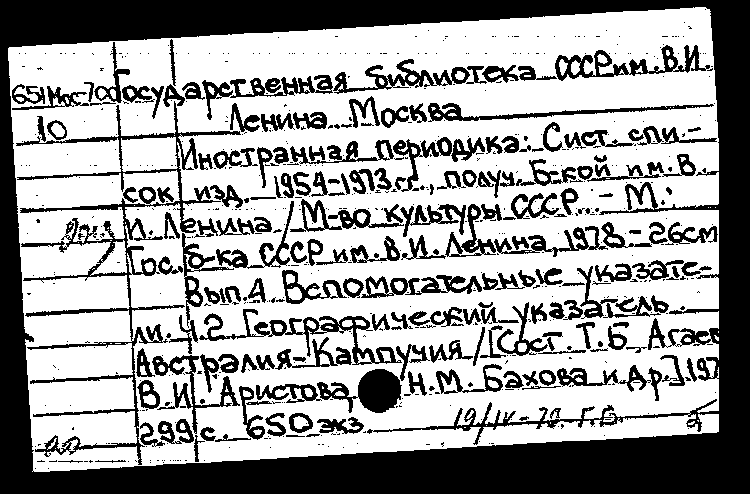 651 Мос-700 Государственная библиотека СССР им. В.И.
10 Ленина. Москва
Иностранная периодика: Сист. спи-
сок изд. 1954-1973 гг., получ. Б-кой им. В.
И. Ленина / М-во культуры СССР. - М.:
Гос. б-ка СССР им. В.И. Ленина, 1978. - 26см
Вып. 4. Вспомогательные указате-
ли. Ч.2. Географический указатель.
Австралия-Кампучия / [Сост. Т.Б. Агаев
В.И. Аристова, Н.М. Бахова и др.] 197
299 с. 650 экз.